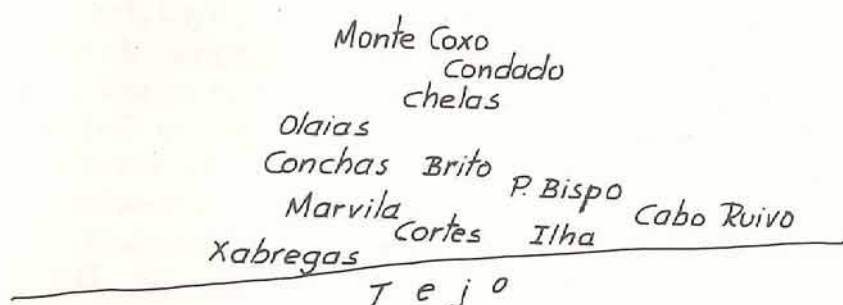 Monte Coxo
Condado
Chelas
Olaias
Conchas Brito
P. Bispo
Marvila
Cabo Ruivo
Cortes
Ilha
Xabregas
Tejo